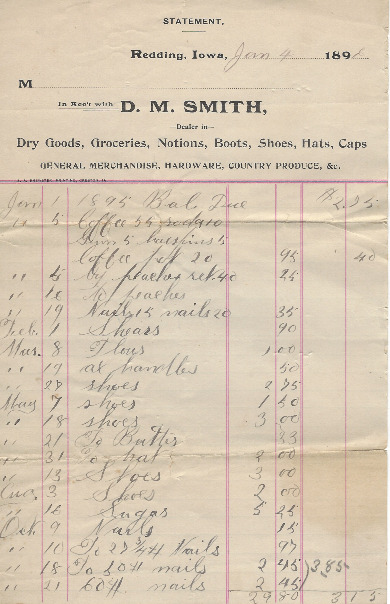 STATEMENT.
Redding, Iowa, Jan 4 189
M
In Acc't with D. M. SMITH,
Dealer in
Dry Goods, Groceries, Notions, Boots, Shoes, Hats, Caps
GENERAL MERCHANDISE, HARDWARE, COUNTRY PRODUCE, &c.
Jan 1 1895 Bal. Due
" 5 Coffee 55 soda 10
Coffee 20 95 40
" 4 by peaches 40 25
" to peaches
" 19 nails 20 35
Feb. 1 Shears 90
Mar. 8 Flour 1 00
" 19 ax handles 50
" 27 shoes 2 75
May 7 shoes 1 50
" 18 shoes 3 00
" 21 To Butter 33
" 31 To hat 2 00
" 13 Shoes 3 00
3 Shoes 2 00
" 16 Sugar 5 25
Oct. 9 Nails 15
" 10 To 27 3/4 # Nails 97
" 18 To 60# nails 2 45 3.85
" 21 60#. nails 2 45
29 80 3 1 5